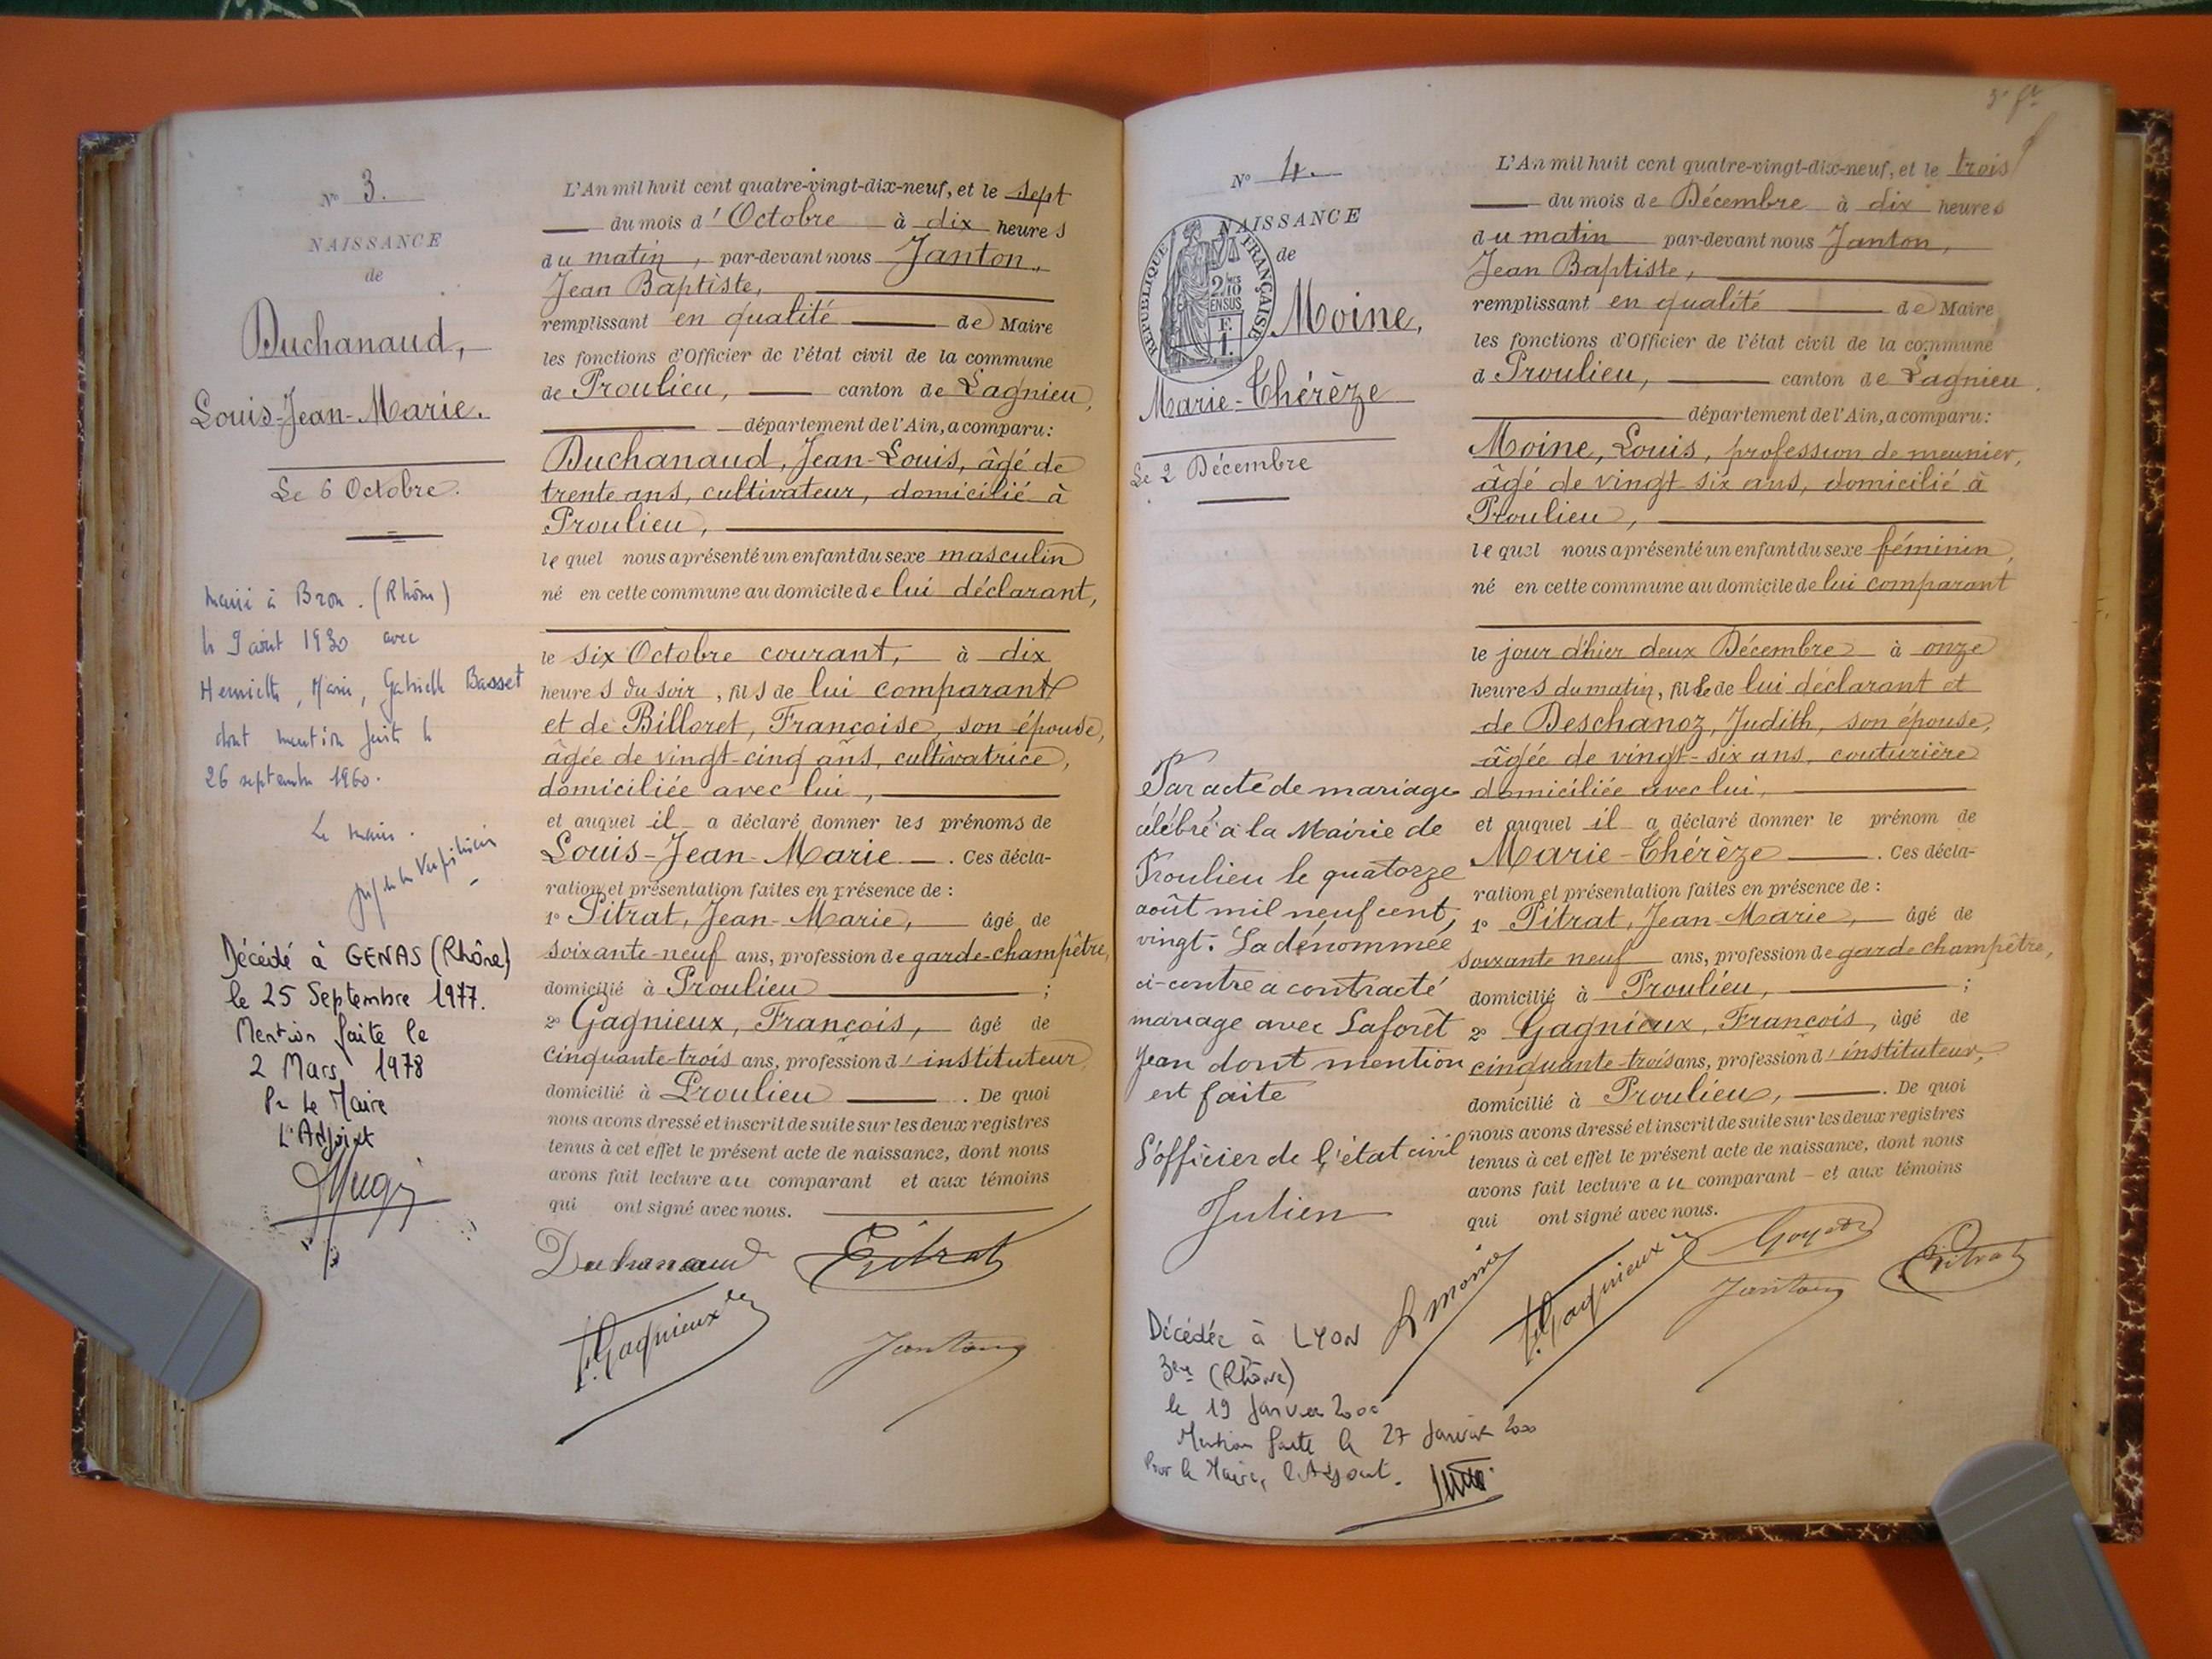 N° 3.
NAISSANCE
de
Duchanaud,
Louis-Jean-Marie.
Le 6 Octobre.
marié à Bron. (Rhône)
le 9 août 1930 avec
Henriette, Marie, Gabrielle Basset
dont mention faite le
26 septembre 1960.
Le maire.
Décédé à GENAS (Rhône)
le 25 Septembre 1977.
Mention faite le
2 Mars 1978
Pr Le Maire
L'Adjoint
L'An mil huit cent quatre-vingt-dix-neuf, et le sept
du mois d'Octobre à dix heures
du matin, par-devant nous Janton,
Jean Baptiste,
remplissant en qualité de Maire
les fonctions d'Officier de l'état civil de la commune
de Proulieu, canton de Lagnieu,
département de l'Ain, a comparu:
Duchanaud, Jean-Louis, âgé de
trente ans, cultivateur, domicilié à
Proulieu,
lequel nous a présenté un enfant du sexe masculin
né en cette commune au domicile de lui déclarant,
le six Octobre courant, à dix
heures du soir, fils de lui comparant
et de Billoret, Françoise, son épouse,
âgée de vingt-cinq ans, cultivatrice,
domiciliée avec lui,
et auquel il a déclaré donner les prénoms de
Louis-Jean-Marie. Ces décla-
ration et présentation faites en présence de :
1° Pitrat, Jean-Marie, âgé de
soixante-neuf ans, profession de garde-champêtre,
domicilié à Proulieu ;
2° Gagnieux, François, âgé de
cinquante-trois ans, profession d'instituteur,
domicilié à Proulieu. De quoi
nous avons dressé et inscrit de suite sur les deux registres
tenus à cet effet le présent acte de naissance, dont nous
avons fait lecture au comparant et aux témoins
qui ont signé avec nous.
Duchanaud Pitrat
F. Gagnieux Janton
N° 4.
NAISSANCE
de
RÉPUBLIQUE FRANÇAISE
2/10 EN SUS
Moine,
Marie-Thérèze
Le 2 Décembre
Par acte de mariage
célébré à la Mairie de
Proulieu le quatorze
août mil neuf cent
vingt. La dénommée
ci-contre a contracté
mariage avec Laforêt
Jean dont mention
est faite
L'officier de l'état civil
Julien
Décédée à LYON
3ème (Rhône)
le 19 Janvier 2000
Mention faite le 27 Janvier 2000
Pour le Maire, l'Adjoint.
L'An mil huit cent quatre-vingt-dix-neuf, et le trois
du mois de Décembre à dix heures
du matin par-devant nous Janton,
Jean Baptiste,
remplissant en qualité de Maire
les fonctions d'Officier de l'état civil de la commune
d Proulieu, canton de Lagnieu.
département de l'Ain, a comparu:
Moine, Louis, profession de meunier,
âgé de vingt-six ans, domicilié à
Proulieu,
lequel nous a présenté un enfant du sexe féminin,
né en cette commune au domicile de lui comparant
le jour d'hier deux Décembre à onze
heures du matin, fille de lui déclarant et
de Deschanoz, Judith, son épouse,
âgée de vingt-six ans, couturière
domiciliée avec lui,
et auquel il a déclaré donner le prénom de
Marie-Thérèze. Ces décla-
ration et présentation faites en présence de :
1° Pitrat, Jean-Marie, âgé de
soixante neuf ans, profession de garde champêtre,
domicilié à Proulieu, ;
2° Gagnieux, François, âgé de
cinquante-trois ans, profession d'instituteur,
domicilié à Proulieu,. De quoi
nous avons dressé et inscrit de suite sur les deux registres
tenus à cet effet le présent acte de naissance, dont nous
avons fait lecture au comparant - et aux témoins
qui ont signé avec nous.
L Moine F. Gagnieux Janton Pitrat